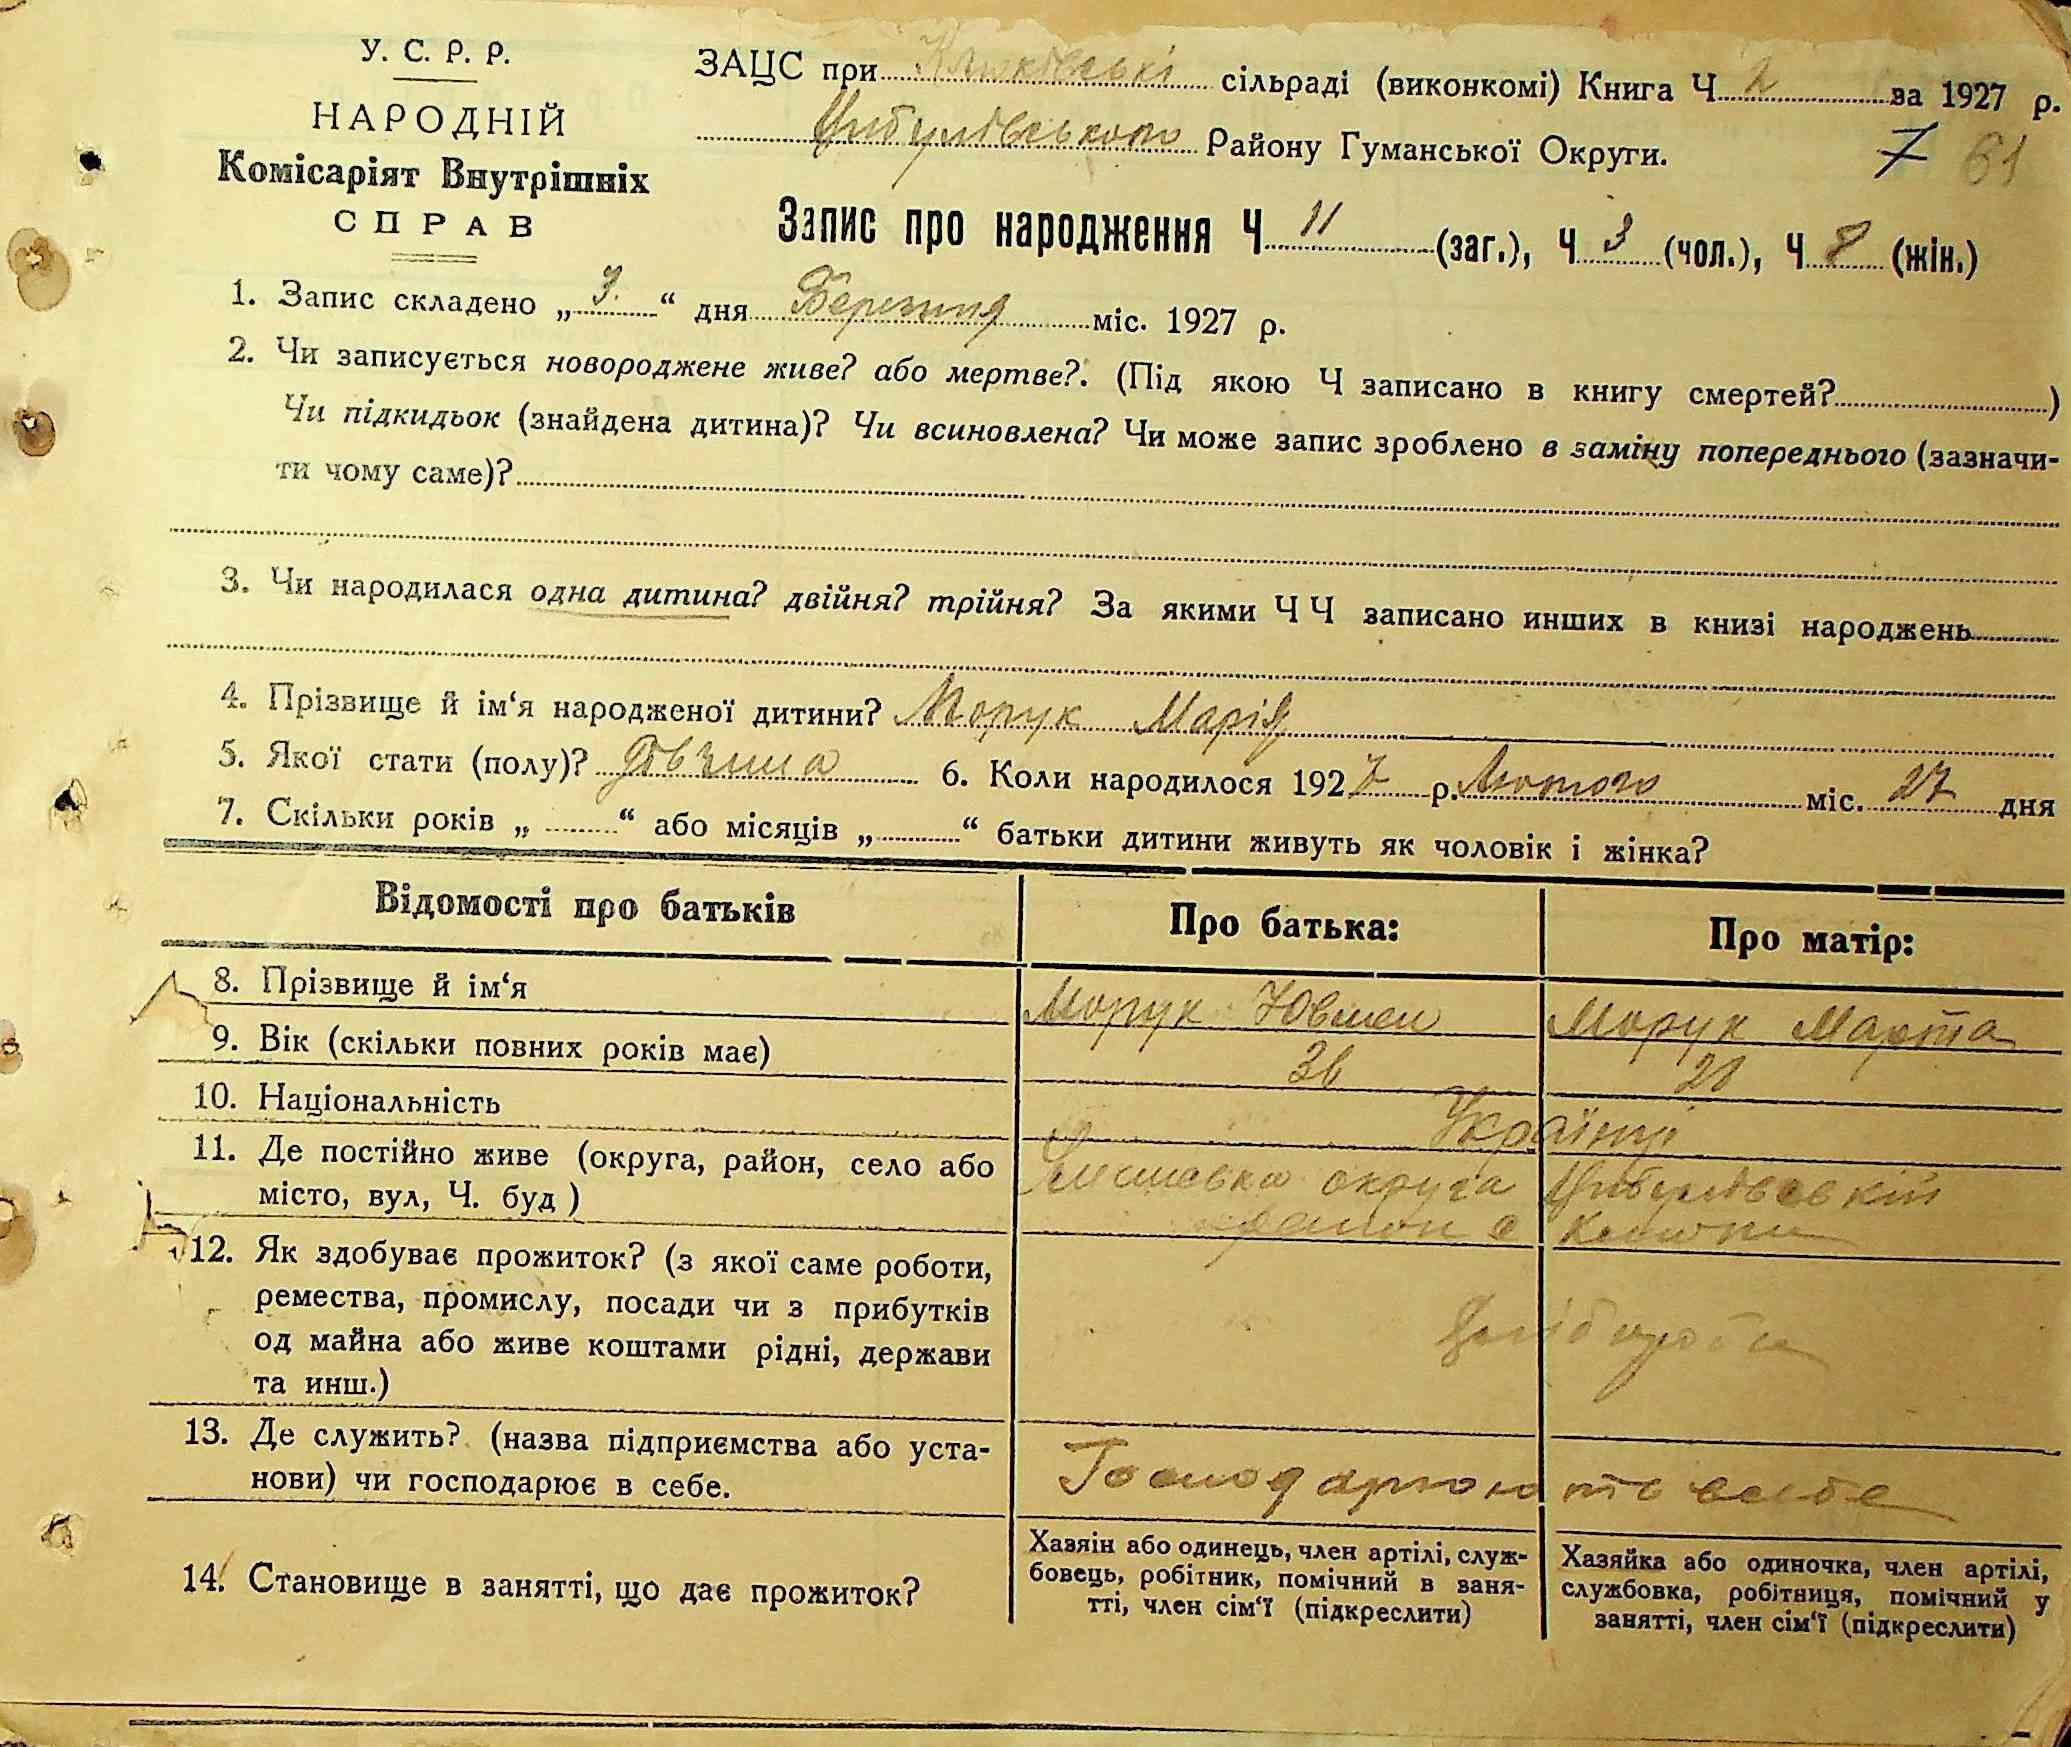 У. С. Р. Р.
НАРОДНІЙ
Комісаріят Внутрішніх
СПРАВ
ЗАЦС при сільраді (виконкомі) Книга Ч 2 за 1927 р.
Цибулівського Району Гуманської Округи.
7 61
Запис про народження Ч 11 (заг.), Ч 3 (чол.), Ч 8 (жін.)
1. Запис складено „ 3. “ дня Березня міс. 1927 р.
2. Чи записується новороджене живе? або мертве?. (Під якою Ч записано в книгу смертей? )
Чи підкидьок (знайдена дитина)? Чи всиновлена? Чи може запис зроблено в заміну попереднього (зазначи-
ти чому саме)?
3. Чи народилася одна дитина? двійня? трійня? За якими Ч Ч записано инших в книзі народжень
4. Прізвище й ім‘я народженої дитини? Морук Марія
5. Якої стати (полу)? Дівчина 6. Коли народилося 1927 р. Лютого міс. 27 дня
7. Скільки років „ “ або місяців „ “ батьки дитини живуть як чоловік і жінка?
Відомості про батьків Про батька: Про матір:
8. Прізвище й ім‘я Морук Морук Марта
9. Вік (скільки повних років має) 36 28
10. Національність Українці
11. Де постійно живе (округа, район, село або округа Цибулівський
місто, вул, Ч. буд ) район с
12. Як здобуває прожиток? (з якої саме роботи,
ремества, промислу, посади чи з прибутків
од майна або живе коштами рідні, держави
та инш.) Хлібороби
13. Де служить? (назва підприємства або уста-
нови) чи господарює в себе. Господарюють в себе
14. Становище в занятті, що дає прожиток?
Хазяін або одинець, член артілі, служ-
бовець, робітник, помічний в заня-
тті, член сім‘ї (підкреслити)
Хазяйка або одиночка, член артілі,
службовка, робітниця, помічний у
занятті, член сім‘ї (підкреслити)